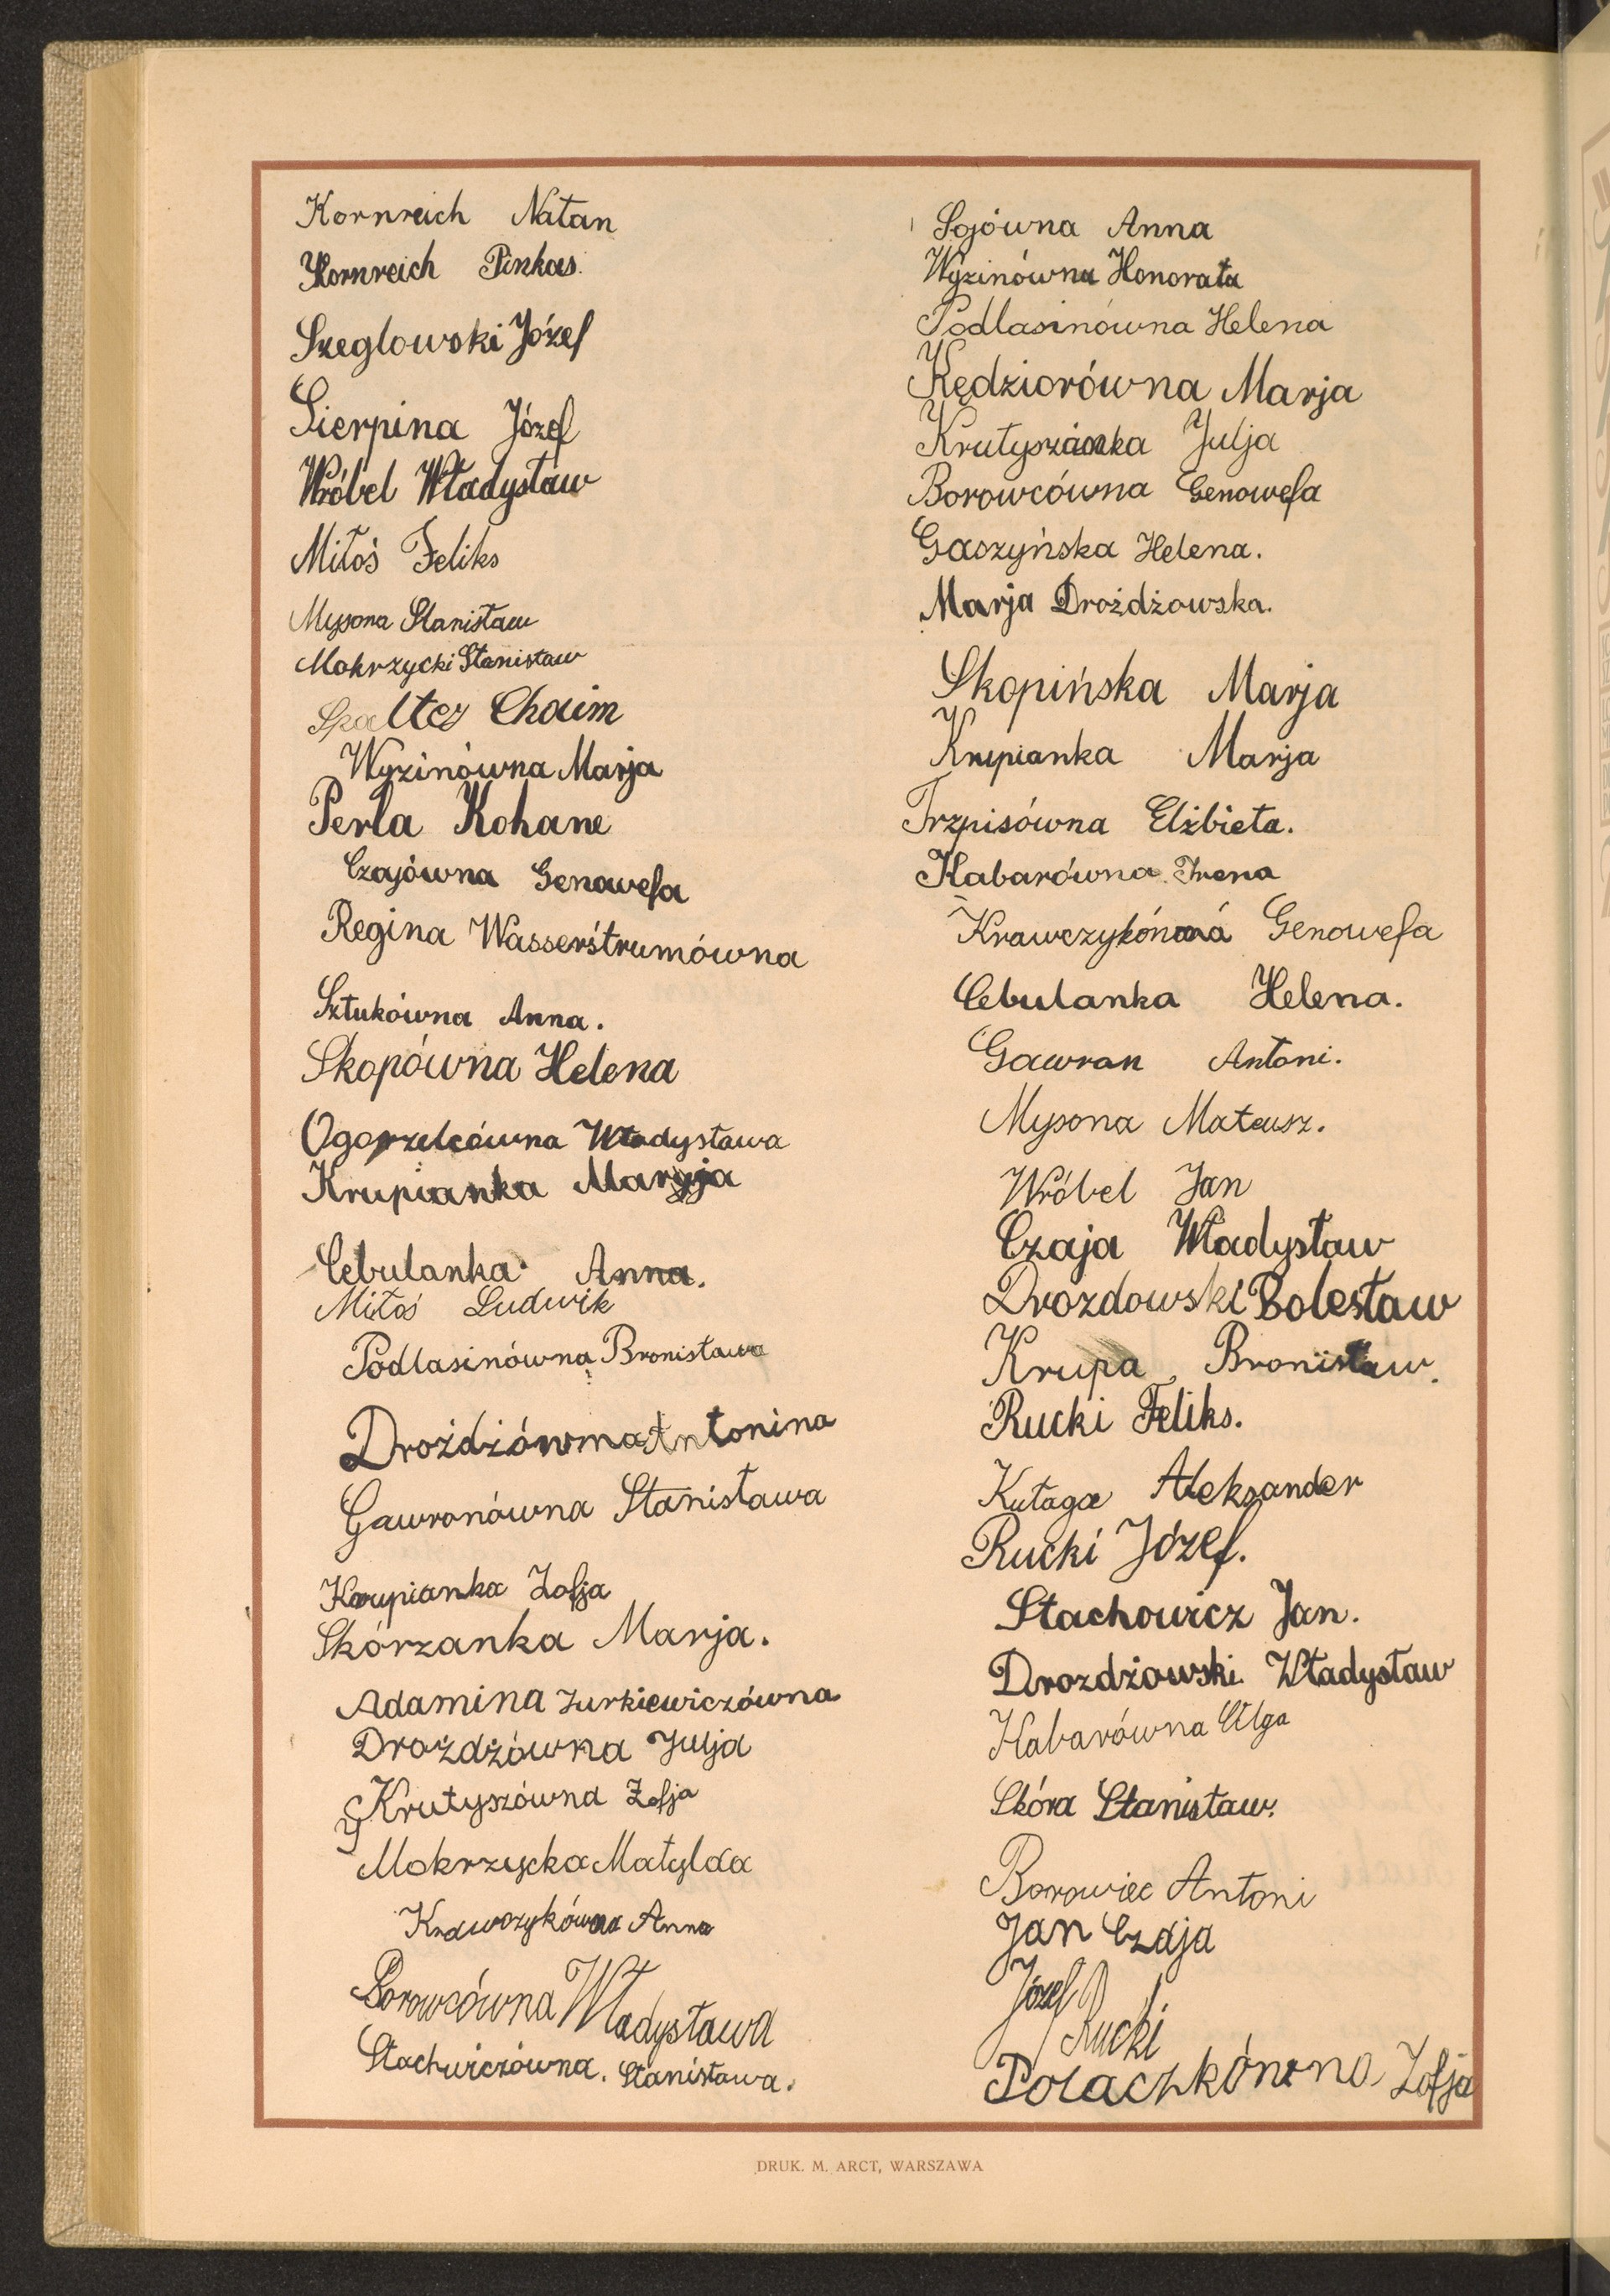 Kornreich Natan
Kornreich Pinkas.
Szeglowski Józef
Sierpina Józef
Wróbel Władysław
Miłoś Feliks
Mysona Stanisław
Mokrzycki Stanisław
Spalter Chaim
Wyzinówna Marja
Perla Kohane
Czajówna Genowefa
Regina Wasserśtrumówna
Sztukówna Anna.
Skopówna Helena
Ogorzelcówna Władysława
Krupianka Maryja
Cebulanka Anna.
Miłoś Ludwik
Podlasinówna Bronisława
Drożdżówna Antonina
Gawronówna Stanisława
Krupianka Zofja
Skórzanka Marja.
Adamina Żurkiewiczówna
Drożdżówna Julja
Krutyszówna Zofja
Mokrzycka Matylda
Krawczykówna Anna
Borowcówna Władysława
Stachwiczówna. Stanisława.
Sojówna Anna
Wyzinówna Honorata
Podlasinówna Helena
Kędziorówna Marja
Krutyszanka Julja
Borowcówna Genowefa
Gaszyńska Helena.
Marja Drożdżowska.
Skopińska Marja
Krupianka Marja
Trzpisówna Elżbieta.
Kabarówna Irena
Krawczykówna Genowefa
Cebulanka Helena.
Gawron Antoni.
Mysona Mateusz.
Wróbel Jan
Czaja Władysław
Drozdowski Bolesław
Krupa Bronisław.
Rucki Feliks.
Kułaga Aleksander
Rucki Józef.
Stachowicz Jan.
Drozdżowski Władysław
Kabarówna Olga
Skóra Stanisław.
Borowiec Antoni
Jan Czaja
Józef Rucki
Polaczkówna Zofja
DRUK. M. ARCT, WARSZAWA